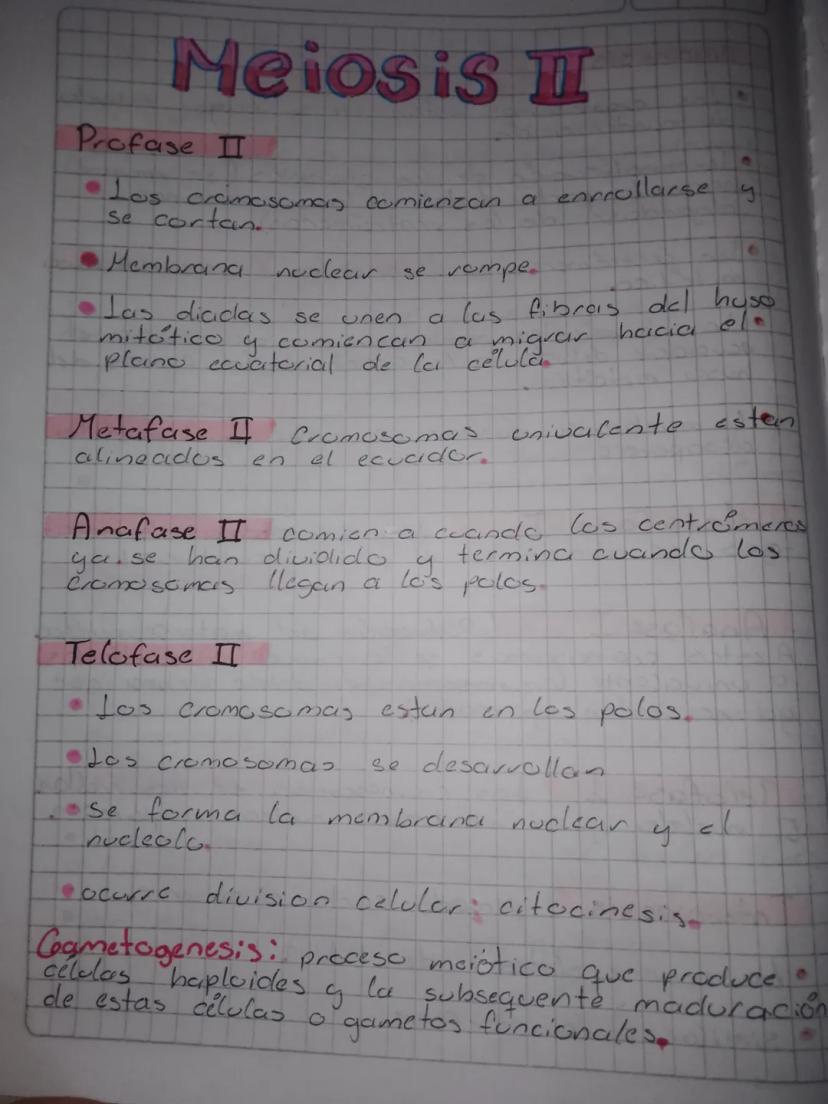 Meiosis II
Profase II
• Los cromosomas comienzan a enrrollarse y
se cortan.
• Membrana nuclear se rompe.
• Las diadas se unen a las fibras del huso
mitótico y comiencan a migrar hacia el
plano ecuatorial de la célula.
Metafase II Cromosomas univalente esten
alineados en el ecuador.
Anafase II comien a cuando los centrómeros
ya se han dividido y termina cuando los
cromosomas llegan a los polos.
Telofase II
• Los cromosomas estan en los polos.
• Los cromosomas se desarrollan
• se forma la membrana nuclear y el
nucleolo.
• ocurre division celular: citocinesis.
Gametogenesis: proceso meiótico que produce
células haploides y la subsequente maduración
de estas células o gametos funcionales.